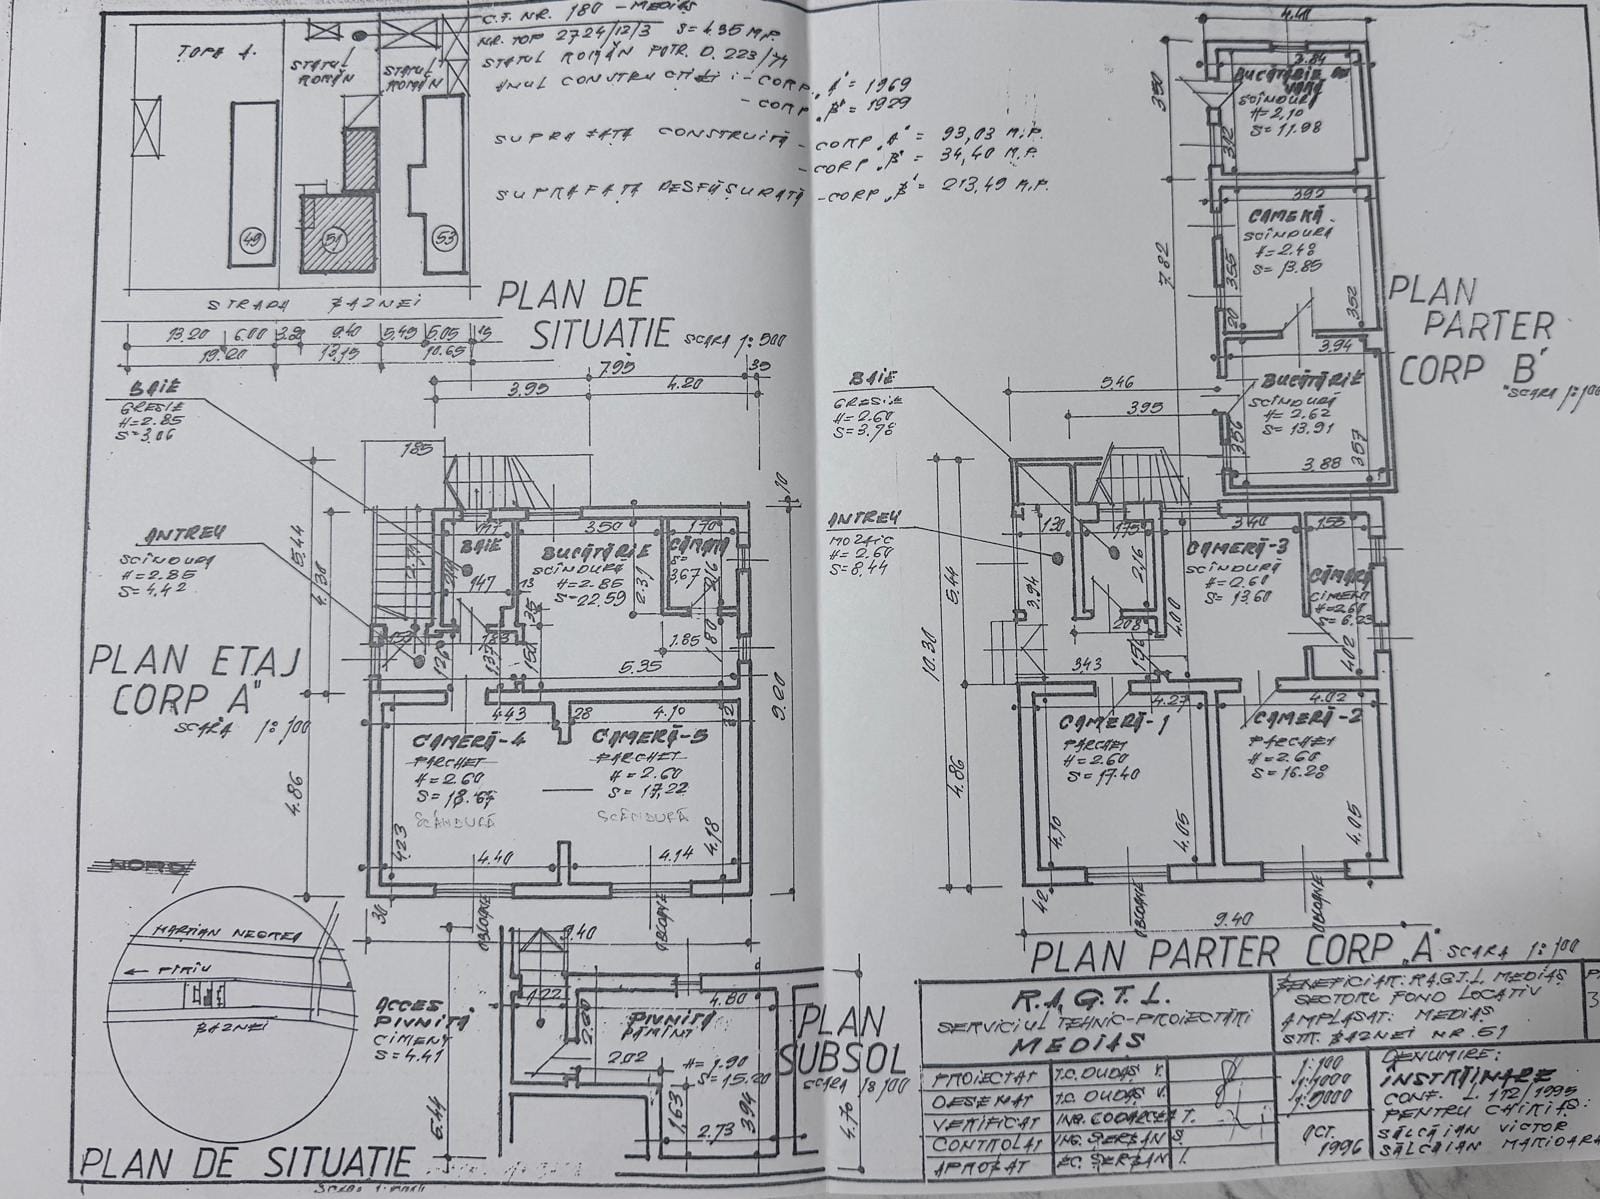 C.F. NR. 180 - MEDIAȘ
NR. TOP 2724/12/3 S=495 M.P.
STATUL ROMÂN POTR. D. 223/74
ANUL CONSTRUCȚIEI: - CORP „A" = 1969
- CORP „B" = 1929
SUPRAFAȚA CONSTRUITĂ - CORP „A" = 93,03 M.P.
- CORP „B" = 34,40 M.P.
SUPRAFAȚA DESFĂȘURATĂ - CORP „B" = 213,49 M.P.
TOPA A.
STATUL ROMÂN
STATUL ROMÂN
49
51
53
STRADA BAZNEI
13.20 6.00 3.20 9.40 5.45 5.05 15
19.20 13.15 10.65
PLAN DE
SITUATIE SCARA 1:500
7.95 35
3.95 4.20
BAIE
GRESIE
H=2.85
S=3,06
185
5.44
4.30
10
ANTREU
SCÎNDURA
H=2.85
S=4,42
147 3.50 170
BAIE
147
13
BUCĂTĂRIE
SCÎNDURĂ
H=2.85
S=22.59
2.31
CĂMARĂ
S=
3,67
2.16
35
153 126 183 137 150
1.85 180
5.35
PLAN ETAJ
CORP A"
SCARA 1:100
9.20
4.43 28 4.10 32
CAMERĂ-4
PARCHET
H=2.60
S=18.67
SCÂNDURĂ
CAMERĂ-5
PARCHET
H=2.60
S=17,22
SCÂNDURĂ
4.86
4.23
4.40
4.14
4.18
30
OBLOANE
OBLOANE
9.40
NORD
MARȚIAN NEGREA
← PIRIU
BAZNEI
PLAN DE SITUATIE
ACCES
PIVNIȚĂ
CIMENT
S=4.41
5.44
1.22
4.80
2.60
PIVNIȚĂ
PĂMÎNT
2.02
H=1.90
S=15.20
1.63
3.94
2.73
4.70
PLAN
SUBSOL
SCARA 1:100
4.40
3.50
3.84
BUCĂTĂRIE DE
VARĂ
SCÎNDURĂ
H=2,10
S=11.98
3.12
7.82
392
CAMERĂ
SCÎNDURA
H=2.48
S=13.85
3.55
3.52
20
3.94
BUCĂTĂRIE
SCÎNDURĂ
H=2.62
S=13.91
356
357
3.88
PLAN
PARTER
CORP B"
SCARA 1:100
BAIE
GRESIE
H=2.60
S=3.78
5.46
395
ANTREU
MOZAIC
H=2.60
S=8,44
130 175 3.40 155
2.16
3.94
CAMERĂ-3
SCÎNDURĂ
H=2.60
S=13.60
CĂMARĂ
CIMENT
H=2.60
S=6.23
208
4.00
4.02
5.44
10.30
343
156
4.27 4.02
CAMERĂ-1
PARCHET
H=2.60
S=17.40
CAMERĂ-2
PARCHET
H=2.60
S=16.28
4.86
4.10
4.05
4.05
42
OBLOANE
OBLOANE
9.40
PLAN PARTER CORP „A" SCARA 1:100
R.A.G.T.L.
SERVICIUL TEHNIC-PROIECTĂRI
MEDIAȘ
BENEFICIAR: R.A.G.T.L. MEDIAȘ
SECTORU FOND LOCATIV
AMPLASAT: MEDIAȘ
STR. BAZNEI NR. 51
PROIECTAT T.C. DUDAȘ V.
DESENAT T.C. DUDAȘ V.
VERIFICAT
CONTROLAT ING. ȘERBAN S.
APROBAT EC. ȘERBAN I.
1:100
1:1000
1:5000
OCT.
1996
DENUMIRE:
ÎNSTRĂINARE
CONF. L. 112/1995
PENTRU CHIRIAȘ:
SĂLCĂIAN VICTOR
SĂLCĂIAN MARIOARA